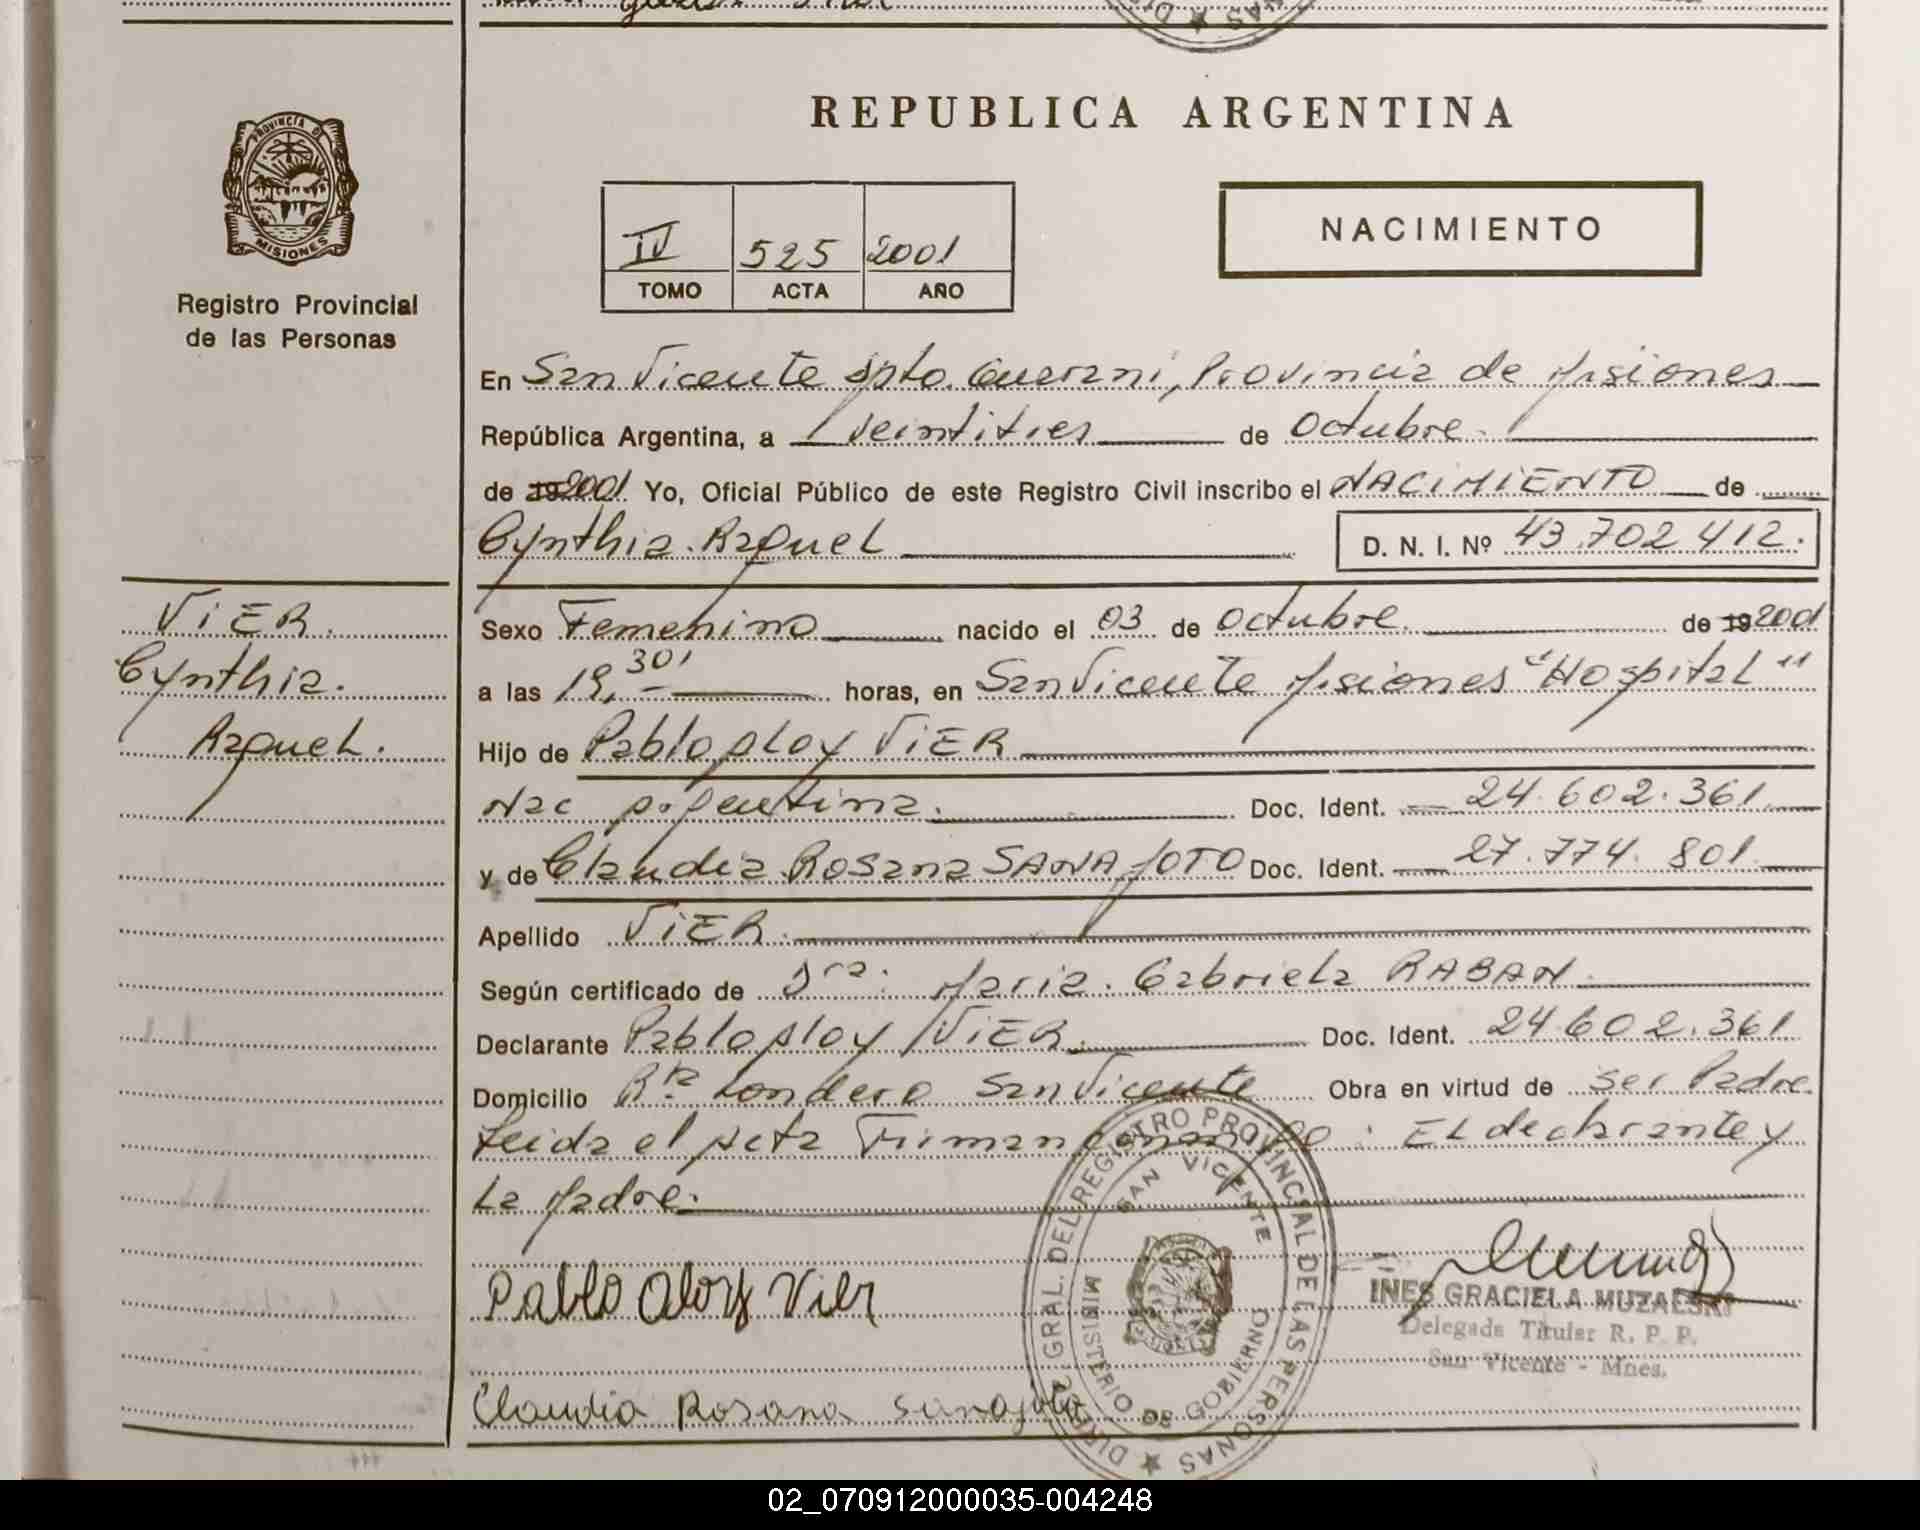 REPUBLICA ARGENTINA
PROVINCIA DE
MISIONES
Registro Provincial
de las Personas
IV 525 2001
TOMO ACTA AÑO
NACIMIENTO
En San Vicente Dpto. Guarani, Provincia de Misiones
República Argentina, a veintitres de Octubre
de 19 2001 Yo, Oficial Público de este Registro Civil inscribo el NACIMIENTO de
Cynthia Raquel D. N. I. Nº 43.702 412.
VIER.
Cynthia.
Raquel.
Sexo Femenino nacido el 03 de Octubre de 19 2001
a las 19,30' horas, en San Vicente Misiones "Hospital"
Hijo de Pablo Aloy VIER
Nac Argentina. Doc. Ident. 24.602.361
y de Claudia Rosana SANAJOTO Doc. Ident. 27.774.801
Apellido VIER.
Según certificado de Dra. Maria Gabriela RABAN.
Declarante Pablo Aloy VIER. Doc. Ident. 24.602.361
Domicilio Rta Londero San Vicente Obra en virtud de ser Padre
Leida el Acta Firman : El declarante y
La Madre.
Pablo Aloy Vier
Claudia Rosana Sanajoto
DIREC. GRAL. DEL REGISTRO PROVINCIAL DE LAS PERSONAS
SAN VICENTE
MINISTERIO DE GOBIERNO
INES GRACIELA MUZALSKI
Delegada Titular R. P. P.
San Vicente - Mnes.
02_070912000035-004248